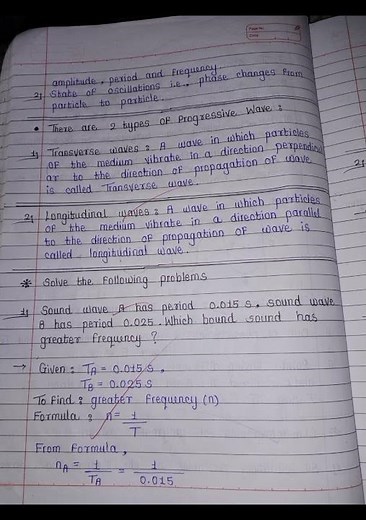 amplitude, period and frequency.
2) State of oscillations i.e., phase changes from
particle to particle.
• There are 2 types of Progressive Wave :
1) Transverse waves : A wave in which particles
of the medium vibrate in a direction perpendicul
ar to the direction of propagation of wave
is called Transverse wave.
2) Longitudinal waves : A wave in which particles
of the medium vibrate in a direction parallel
to the direction of propagation of wave is
called longitudinal wave.
* Solve the following problems
1) Sound wave A has period 0.015 s, sound wave
B has period 0.025. Which bound sound has
greater frequency ?
→ Given : TA = 0.015 s,
TB = 0.025 s
To Find : greater frequency (n)
Formula : n = 1
T
From Formula,
nA = 1 = 1
TA 0.015